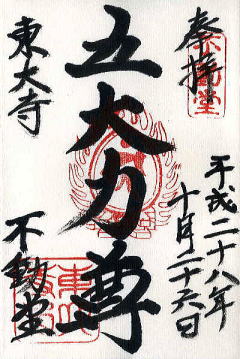 奉拝
平成二十八年
十月二十六日
五大力尊
東大寺
不動堂